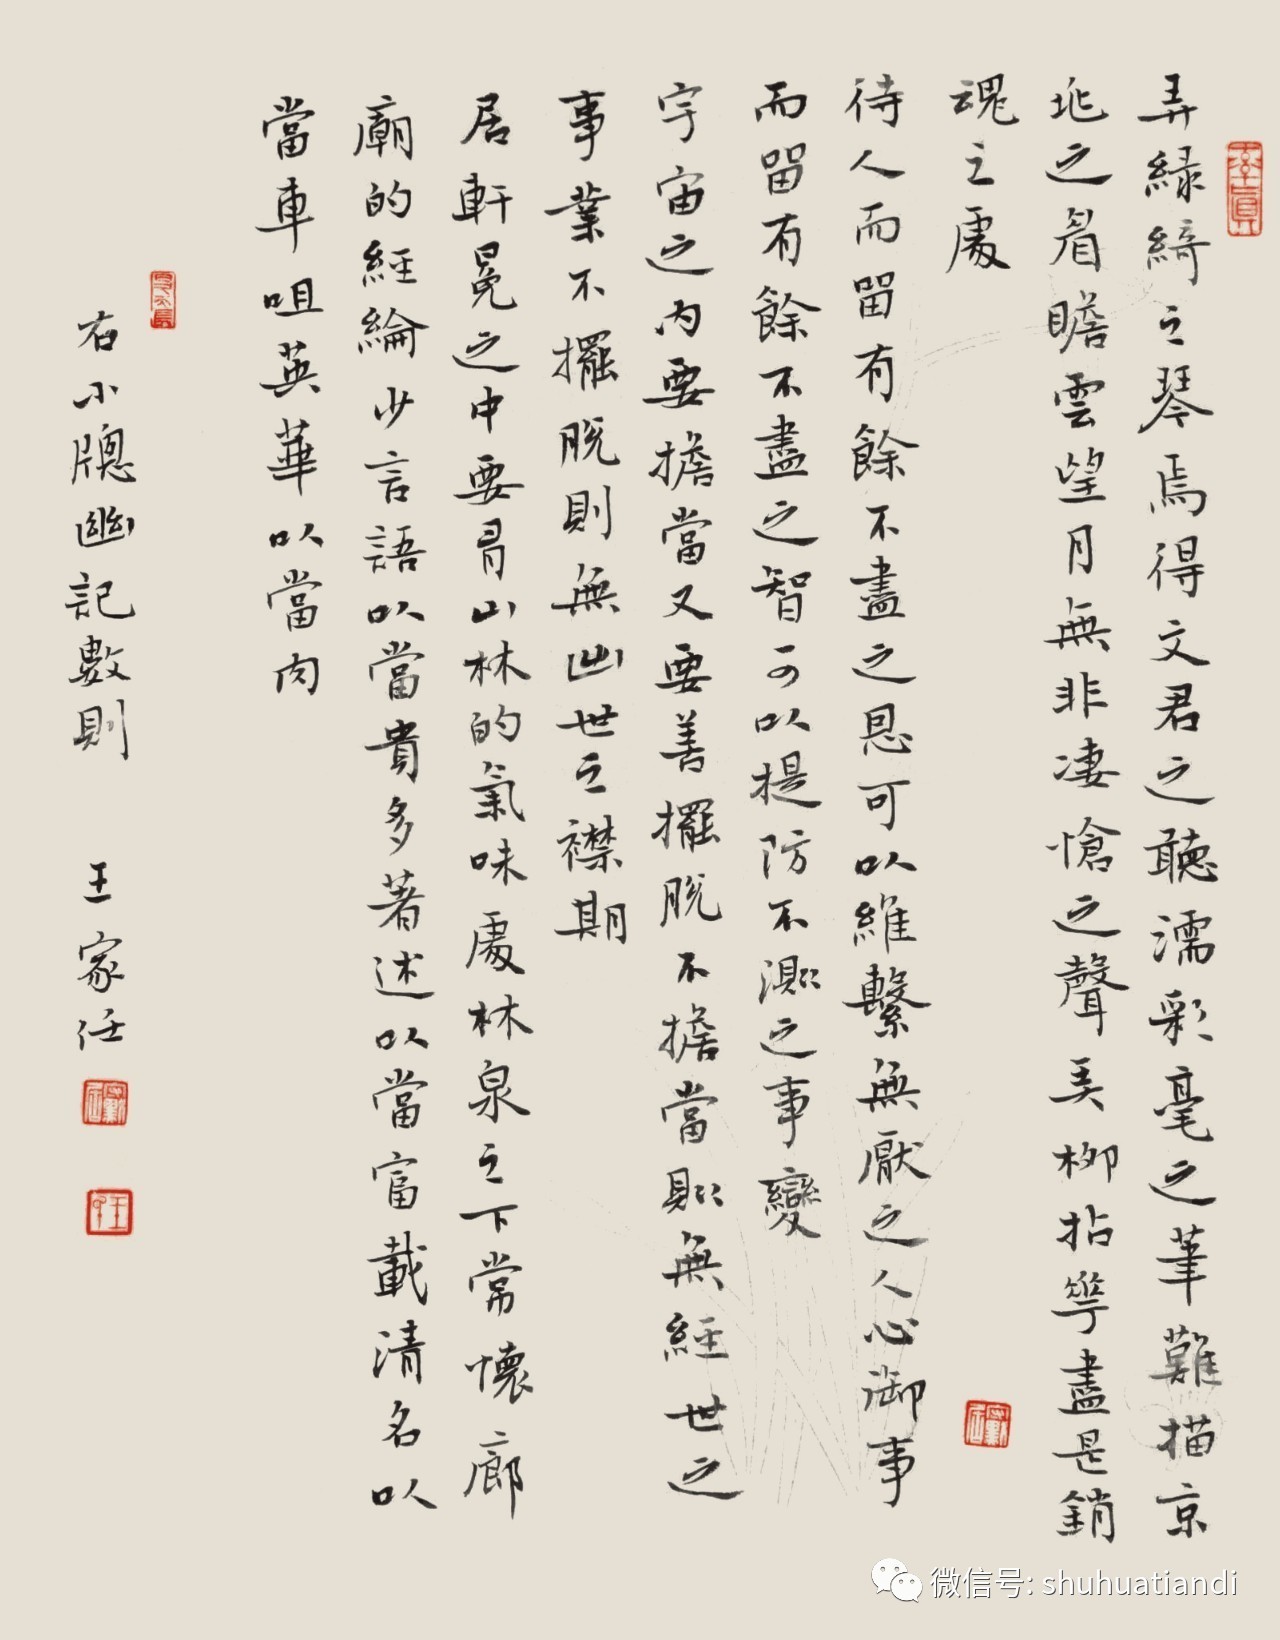 弄緑綺之琴焉得文君之聽濡彩毫之筆難描京
兆之眉瞻雲望月無非凄愴之聲弄柳拈花盡是銷
魂之處
待人而留有餘不盡之恩可以維繫無厭之人心御事
而留有餘不盡之智可以提防不測之事變
宇宙之内要擔當又要善擺脫不擔當則無經世之
事業不擺脫則無出世之襟期
居軒冕之中要有山林的氣味處林泉之下常懷廊
廟的經綸少言語以當貴多著述以當富載清名以
當車咀英華以當肉
右小牕幽記數則 王家任
微信号: shuhuatiandi